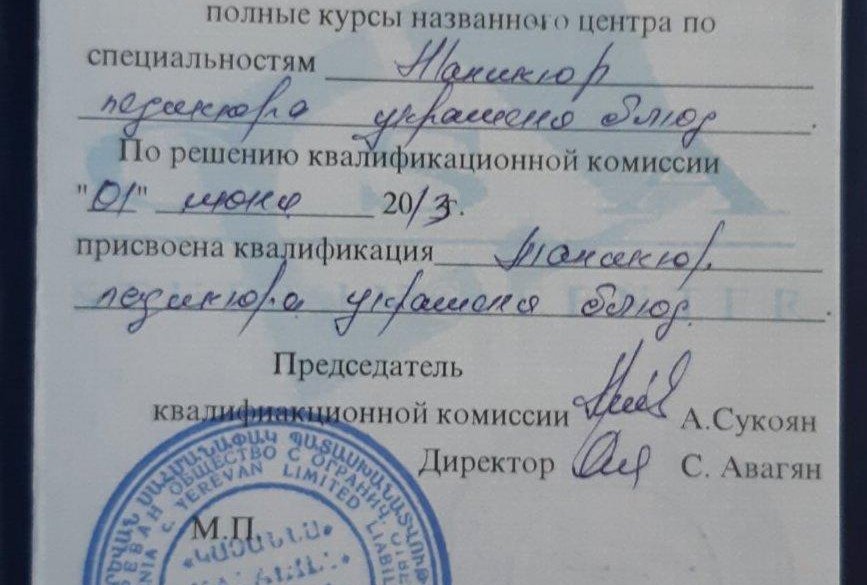 полные курсы названного центра по
специальностям Маникюр
педикюра украшеня блюд.
По решению квалификационной комиссии
"01" июня 2013г.
присвоена квалификация Маникюр.
педикюра украшеня блюд.
Председатель
квалифиакционной комиссии А.Сукоян
Директор С. Авагян
М.П.
ՍԱՀՄԱՆԱՓԱԿ ՊԱՏԱՍԽԱՆԱՏՎՈՒԹ
ОБЩЕСТВО С ОГРАНИЧ.
YEREVAN LIMITED LIABIL